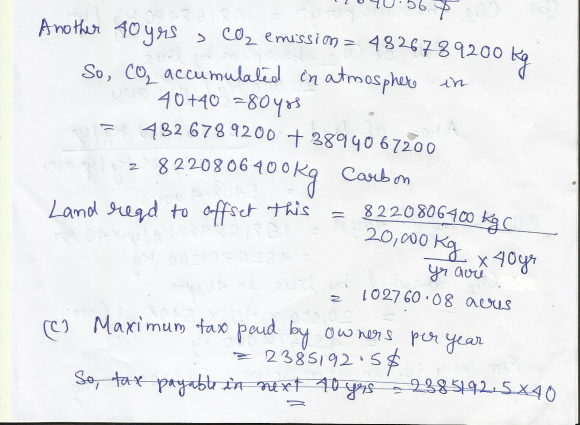 Another 40yrs, CO₂ emission = 4326739200 kg
So, CO₂ accumulated in atmosphere in
40+40 = 80yrs
= 4326739200 + 3894067200
= 8220806400kg Carbon
Land reqd to offset this = 8220806400 kg C
20,000 kg
yr acre × 40yr
= 102760.08 acres
(c) Maximum tax paid by owners per year
= 2385192.5$
So, tax payable in next 40 yrs = 2385192.5×40
=